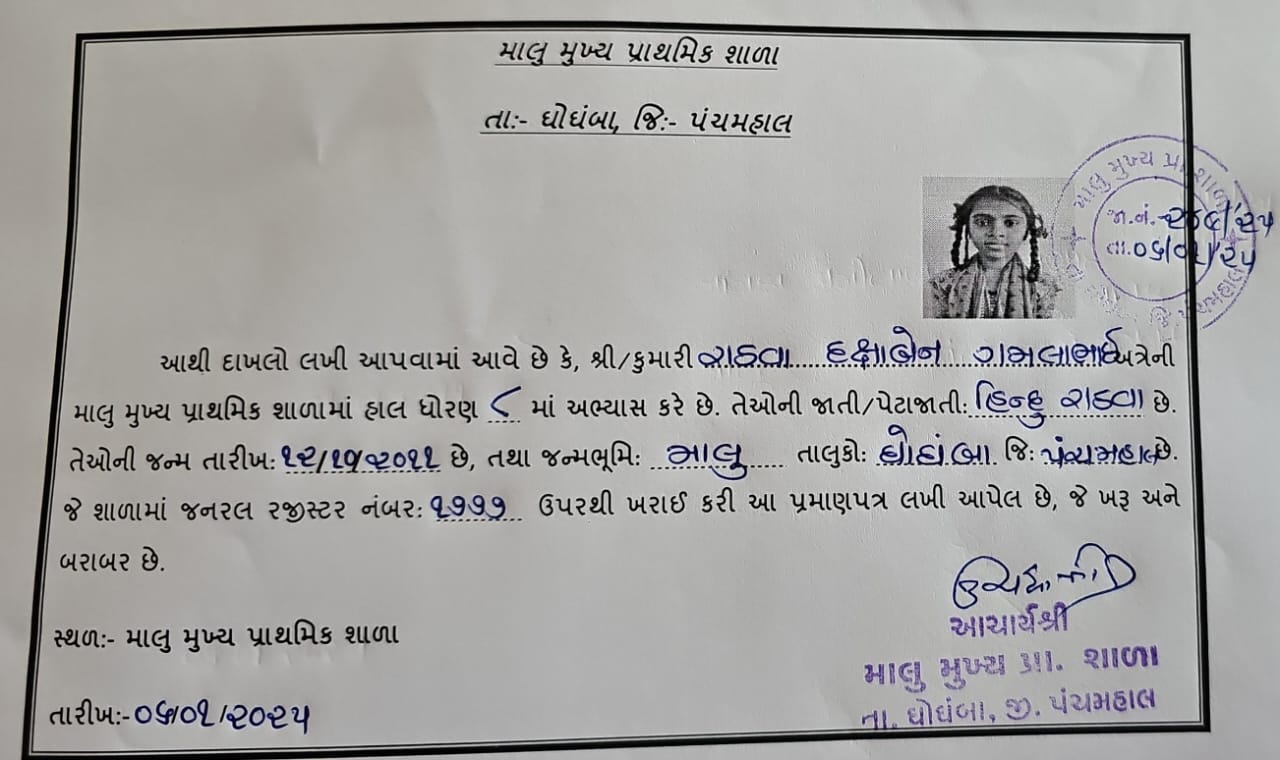 માલુ મુખ્ય પ્રાથમિક શાળા
તાઃ- ઘોઘંબા, જિઃ- પંચમહાલ
માલુ મુખ્ય પ્રા શાળા
જા.નં.-૨૭૬/૨૫
તા.૦૬/૦૧/૨૫
આથી દાખલો લખી આપવામાં આવે છે કે, શ્રી/કુમારી રાઠવા દક્ષાબેન ગમલાભાઈ અત્રેની
માલુ મુખ્ય પ્રાથમિક શાળામાં હાલ ધોરણ ૮ માં અભ્યાસ કરે છે. તેઓની જાતી/પેટાજાતી: હિન્દુ રાઠવા છે.
તેઓની જન્મ તારીખ: ૧૨/૧૧/૨૦૧૧ છે, તથા જન્મભૂમિ: માલુ તાલુકો: ઘોઘંબા જિ: પંચમહાલ છે.
જે શાળામાં જનરલ રજીસ્ટર નંબર: ૧૭૭૭ ઉપરથી ખરાઈ કરી આ પ્રમાણપત્ર લખી આપેલ છે, જે ખરૂ અને
બરાબર છે.
આચાર્યશ્રી
માલુ મુખ્ય પ્રા. શાળા
તા. ઘોઘંબા, જી. પંચમહાલ
સ્થળ:- માલુ મુખ્ય પ્રાથમિક શાળા
તારીખ:- ૦૬/૦૧/૨૦૨૫